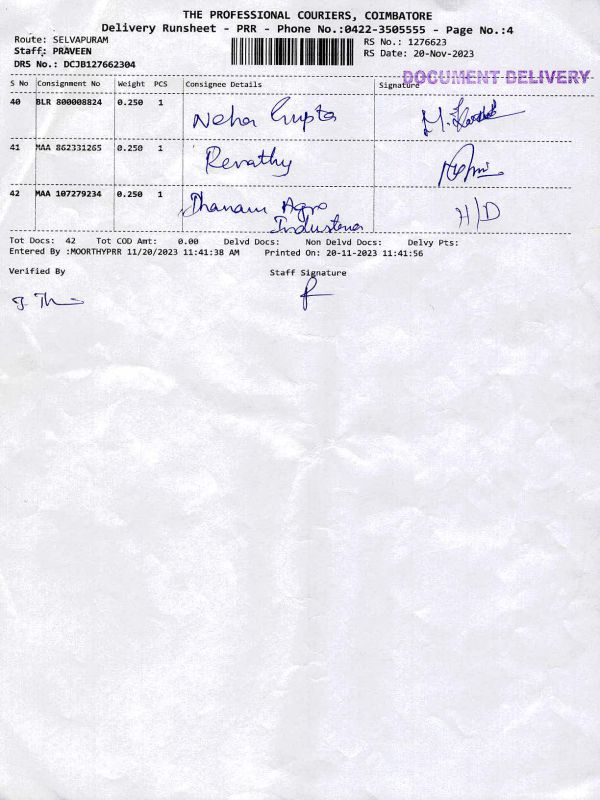 THE PROFESSIONAL COURIERS, COIMBATORE
Delivery Runsheet - PRR - Phone No.:0422-3505555 - Page No.:4
Route: SELVAPURAM
Staff: PRAVEEN
DRS No.: DCJB127662304
RS No.: 1276623
RS Date: 20-Nov-2023
DOCUMENT DELIVERY
S No Consignment No Weight PCS Consignee Details Signature
40 BLR 800008824 0.250 1 Neha Gupta
41 MAA 862331265 0.250 1 Revathy
42 MAA 107279234 0.250 1 Dhanam Agro H/D
Tot Docs: 42 Tot COD Amt: 0.00 Delvd Docs: Non Delvd Docs: Delvy Pts:
Entered By :MOORTHYPRR 11/20/2023 11:41:38 AM Printed On: 20-11-2023 11:41:56
Verified By Staff Signature